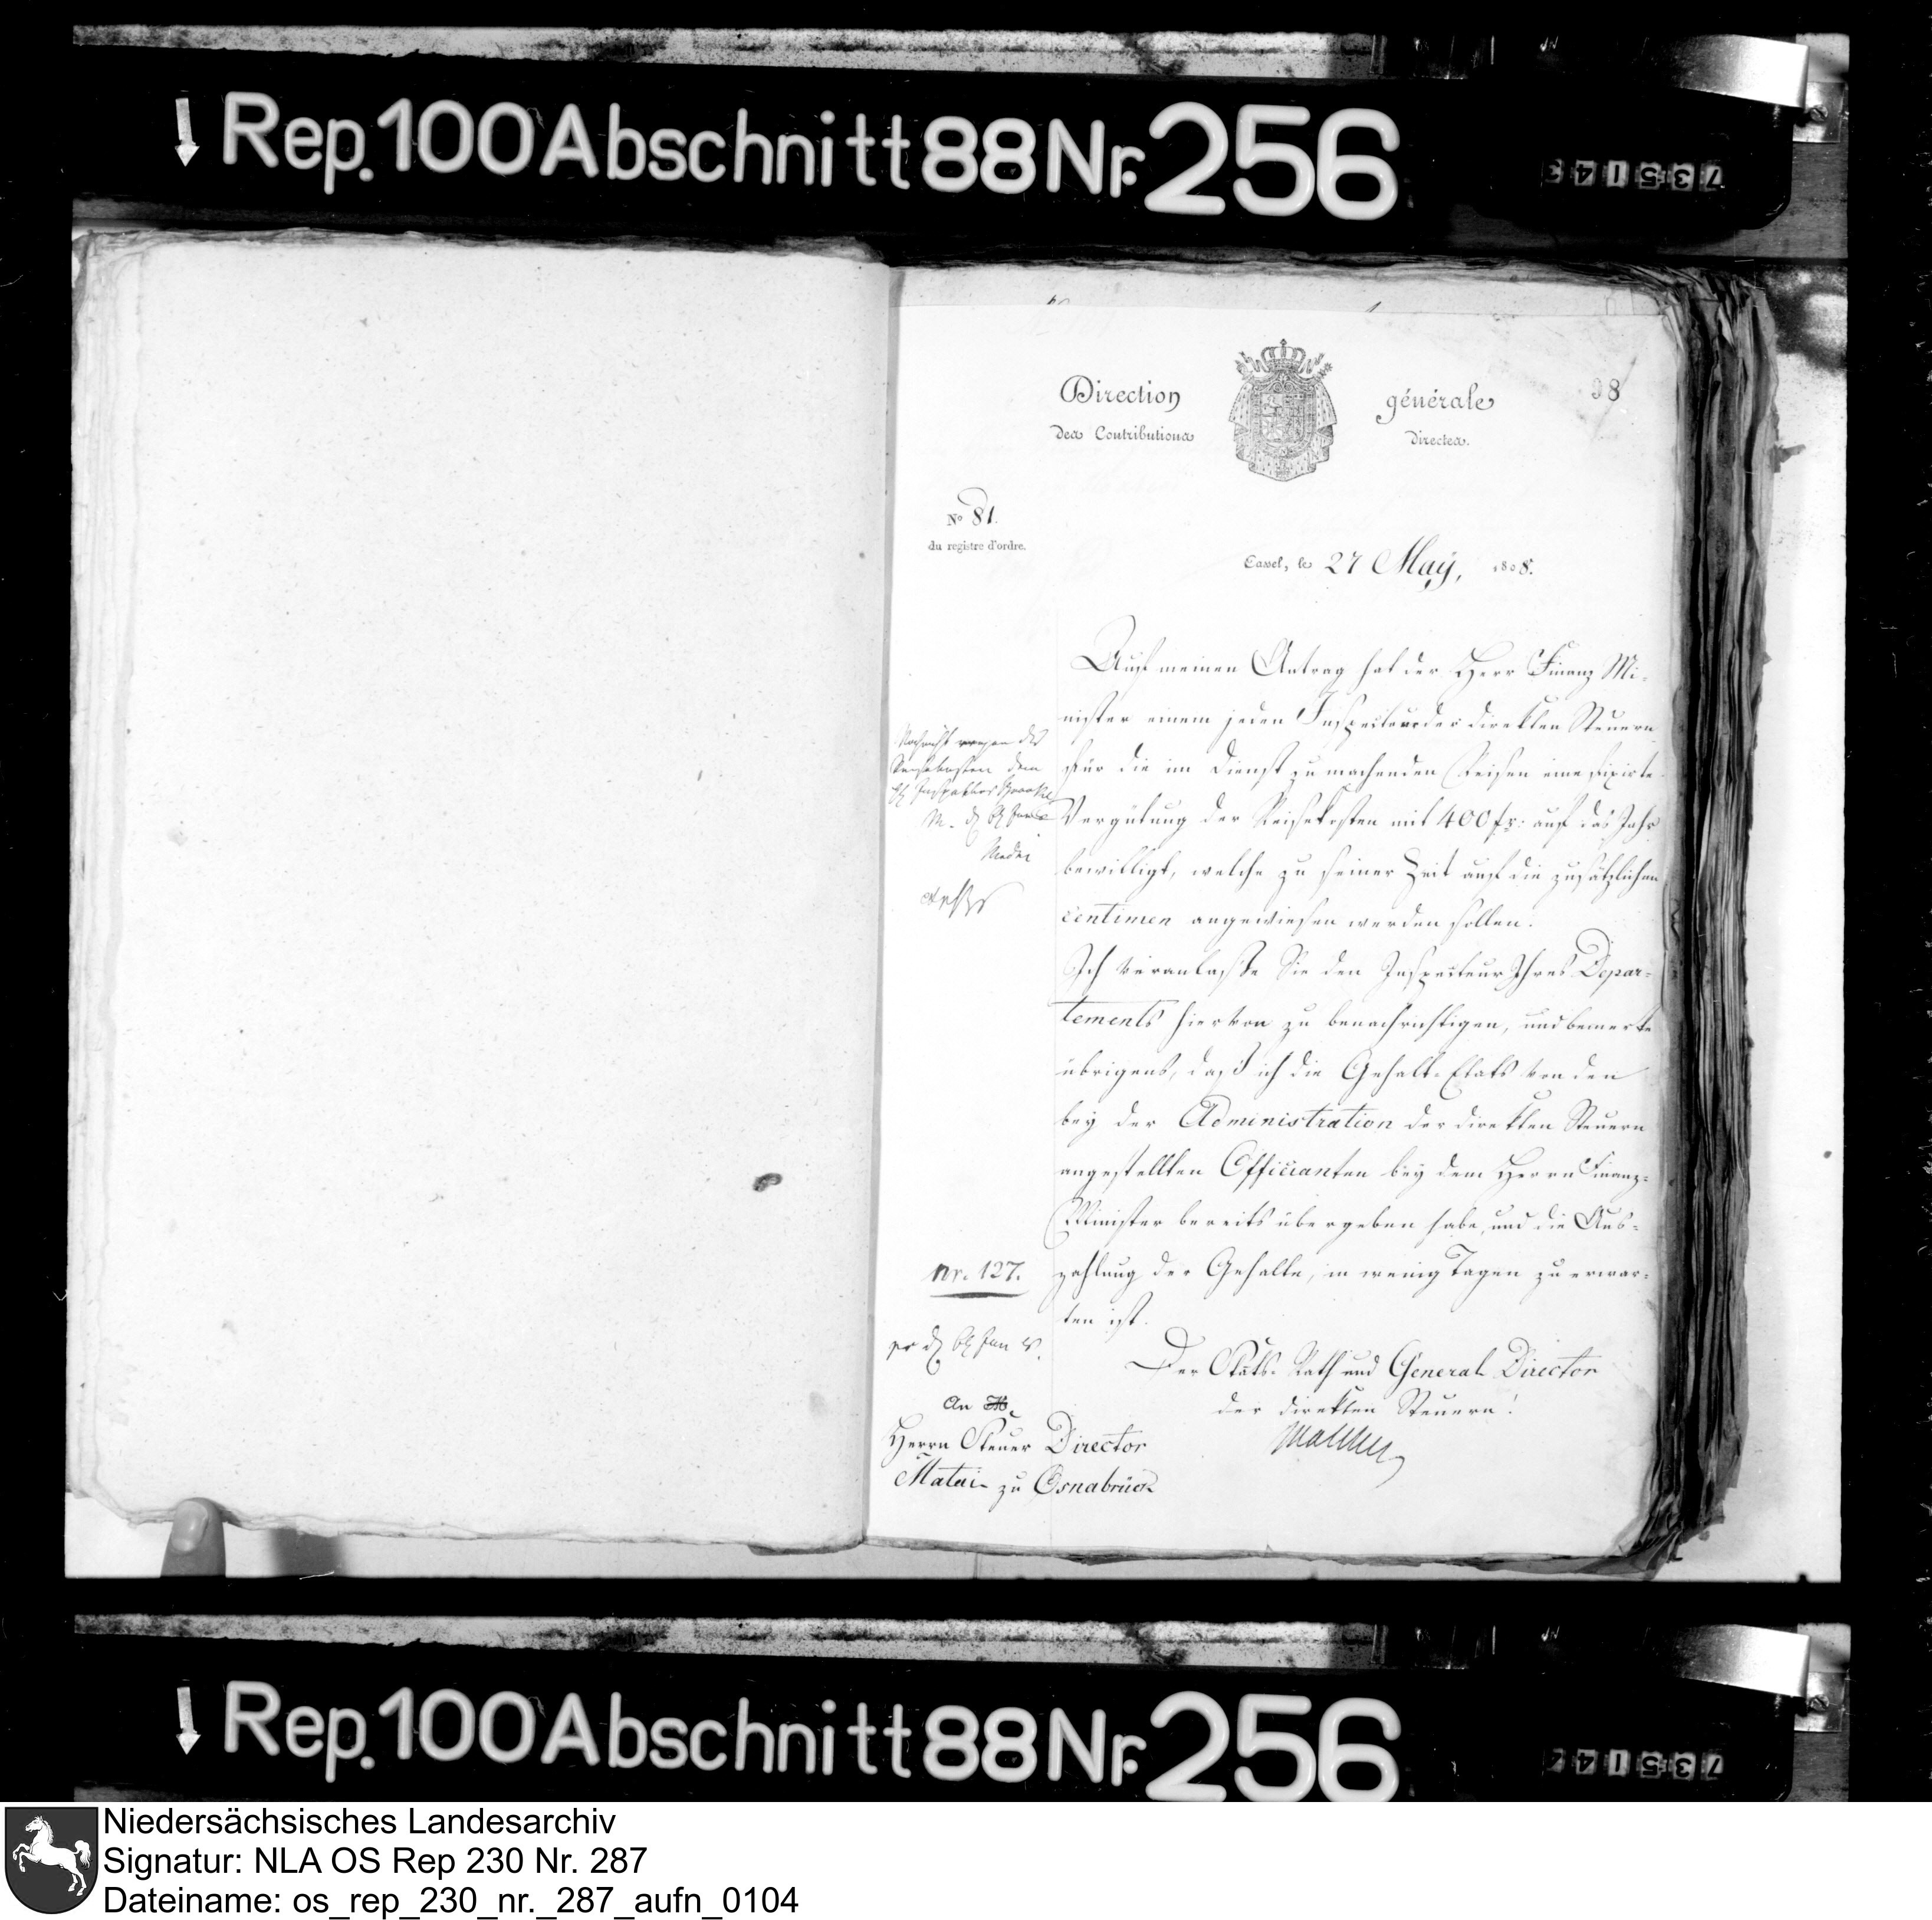 Rep. 100 Abschnitt 88 Nr. 256
735143
98
Direction générale
des Contributions directes.
No 81.
du registre d'ordre.
Cassel, le 27 May, 1808.
Auf meinen Antrag hat der Herr Finanz Mi-
nister einem jeden Inspecteur der direkten Steuern
für die im Dienst zu machenden Reisen eine fixirte
Vergütung der Reisekosten mit 400 fr: auf das Jahr
bewilligt, welche zu seiner Zeit auf die zusätzlichen
centimen angewiesen werden sollen.
Ich veranlasse Sie den Inspecteur Ihres Depar-
tements hiervon zu benachrichtigen, und bemerke
übrigens, daß ich die Gehalt-Etats von den
bey der Administration der direkten Steuern
angestellten Officianten bey dem Herrn Finanz-
Minister bereits übergeben habe, und die Aus-
zahlung der Gehalte, in wenig Tagen zu erwar-
ten ist.
Der Stats-Rath und General Director
der direkten Steuern!
Malchus
wegen der
Reisekosten dem
Inspektor
nr. 127.
An
Herrn Steuer Director
Matai zu Osnabrück
Rep. 100 Abschnitt 88 Nr. 256
Niedersächsisches Landesarchiv
Signatur: NLA OS Rep 230 Nr. 287
Dateiname: os_rep_230_nr._287_aufn_0104